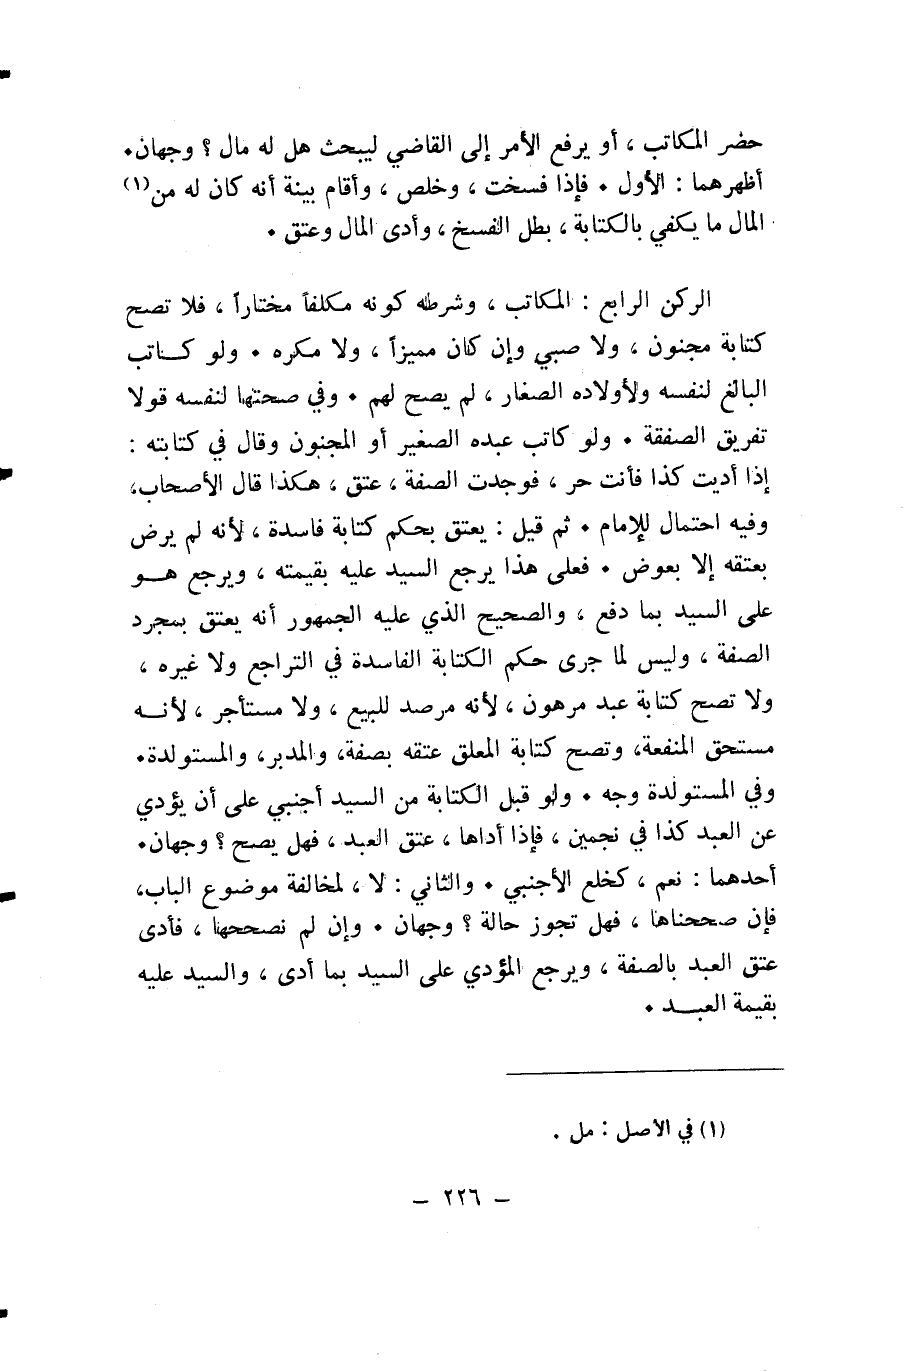 حضر المكاتب ، أو يرفع الأمر إلى القاضي ليبحث هل له مال ؟ وجهان٠
أظهرهما : الأول ٠ فإذا فسخت ، وخلص ، وأقام بينة أنه كان له من(١)
المال ما يكفي بالكتابة ، بطل الفسخ ، وأدى المال وعتق ٠
الركن الرابع : المكاتب ، وشرطه كونه مكلفاً مختاراً ، فلا تصح
كتابة مجنون ، ولا صبي وإن كان مميزاً ، ولا مكره ٠ ولو كــاتب
البالغ لنفسه ولأولاده الصغار ، لم يصح لهم ٠ وفي صحتها لنفسه قولا
تفريق الصفقة ٠ ولو كاتب عبده الصغير أو المجنون وقال في كتابته :
إذا أديت كذا فأنت حر ، فوجدت الصفة ، عتق ، هكذا قال الأصحاب،
وفيه احتمال للإمام ٠ ثم قيل : يعتق بحكم كتابة فاسدة ، لأنه لم يرض
بعتقه إلا بعوض ٠ فعلى هذا يرجع السيد عليه بقيمته ، ويرجع هــو
على السيد بما دفع ، والصحيح الذي عليه الجمهور أنه يعتق بمجرد
الصفة ، وليس لما جرى حكم الكتابة الفاسدة في التراجع ولا غيره ،
ولا تصح كتابة عبد مرهون ، لأنه مرصد للبيع ، ولا مستأجر ، لأنــه
مستحق المنفعة، وتصح كتابة المعلق عتقه بصفة، والمدبر، والمستولدة٠
وفي المستولدة وجه ٠ ولو قبل الكتابة من السيد أجنبي على أن يؤدي
عن العبد كذا في نجمين ، فإذا أداها ، عتق العبد ، فهل يصح ؟ وجهان٠
أحدهما : نعم ، كخلع الأجنبي ٠ والثاني : لا ، لمخالفة موضوع الباب،
فإن صححناها ، فهل تجوز حالة ؟ وجهان ٠ وإن لم نصححها ، فأدى
عتق العبد بالصفة ، ويرجع المؤدي على السيد بما أدى ، والسيد عليه
بقيمة العبــد ٠
(١) في الاصل : مل .
– ٢٢٦ –